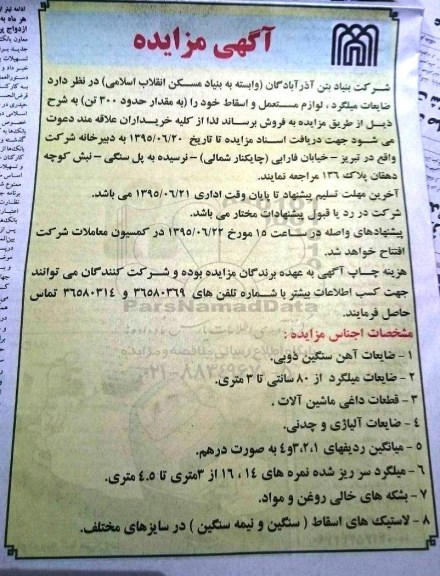 آگهی مزایده
شرکت بنیاد بتن آذرآبادگان (وابسته به بنیاد مسکن انقلاب اسلامی) در نظر دارد
ضایعات میلگرد ، لوازم مستعمل و اسقاط خود را (به مقدار حدود ۳۰۰ تن) به شرح
ذیل از طریق مزایده به فروش برساند لذا از کلیه خریداران علاقه مند دعوت
می شود جهت دریافت اسناد مزایده تا تاریخ ۱۳۹۵/۰۶/۲۰ به دبیرخانه شرکت
واقع در تبریز – خیابان فارابی (چایکنار شمالی) – نرسیده به پل سنگی – نبش کوچه
دهقان پلاک ۱۳۶ مراجعه نمایند.
آخرین مهلت تسلیم پیشنهاد تا پایان وقت اداری ۱۳۹۵/۰۶/۲۱ می باشد.
شرکت در رد یا قبول پیشنهادات مختار می باشد.
پیشنهادهای واصله در ساعت ۱۵ مورخ ۱۳۹۵/۰۶/۲۲ در کمسیون معاملات شرکت
افتتاح خواهد شد.
هزینه چاپ آگهی به عهده برندگان مزایده بوده و شرکت کنندگان می توانند
جهت کسب اطلاعات بیشتر با شماره تلفن های ۳۶۵۸۰۳۶۹ و ۳۶۵۸۰۳۱۴ تماس
حاصل فرمایند.
ParsNamadData
مشخصات اجناس مزایده :
۱- ضایعات آهن سنگین ذوبی.
۲- ضایعات میلگرد از ۸۰ سانتی تا ۳ متری.
۳- قطعات داغی ماشین آلات .
۴- ضایعات آلیاژی و چدنی.
۵- میانگین ردیفهای ۳،۲،۱و۴ به صورت درهم.
۶- میلگرد سر ریز شده نمره های ۱۴ ، ۱۶ از ۳متری تا ۴.۵ متری.
۷- بشکه های خالی روغن و مواد.
۸- لاستیک های اسقاط ( سنگین و نیمه سنگین ) در سایزهای مختلف.